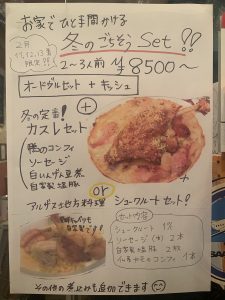 お家でひと手間かける
冬のごちそう Set !!
2月
11,12,13日
限定!!
2〜3人前 ¥8500〜
オードブルセット + キッシュ
+
冬の定番!
カスレセット
鴨のコンフィ
ソーセージ
白いんげん豆煮
自家製塩豚
or
アルザス地方料理
シュークルートセット!
セット内容
シュークルート
ソーセージ(大) 2本
自家製塩豚 2枚
1本
自家製です!!
その他の煮込みも追加できます